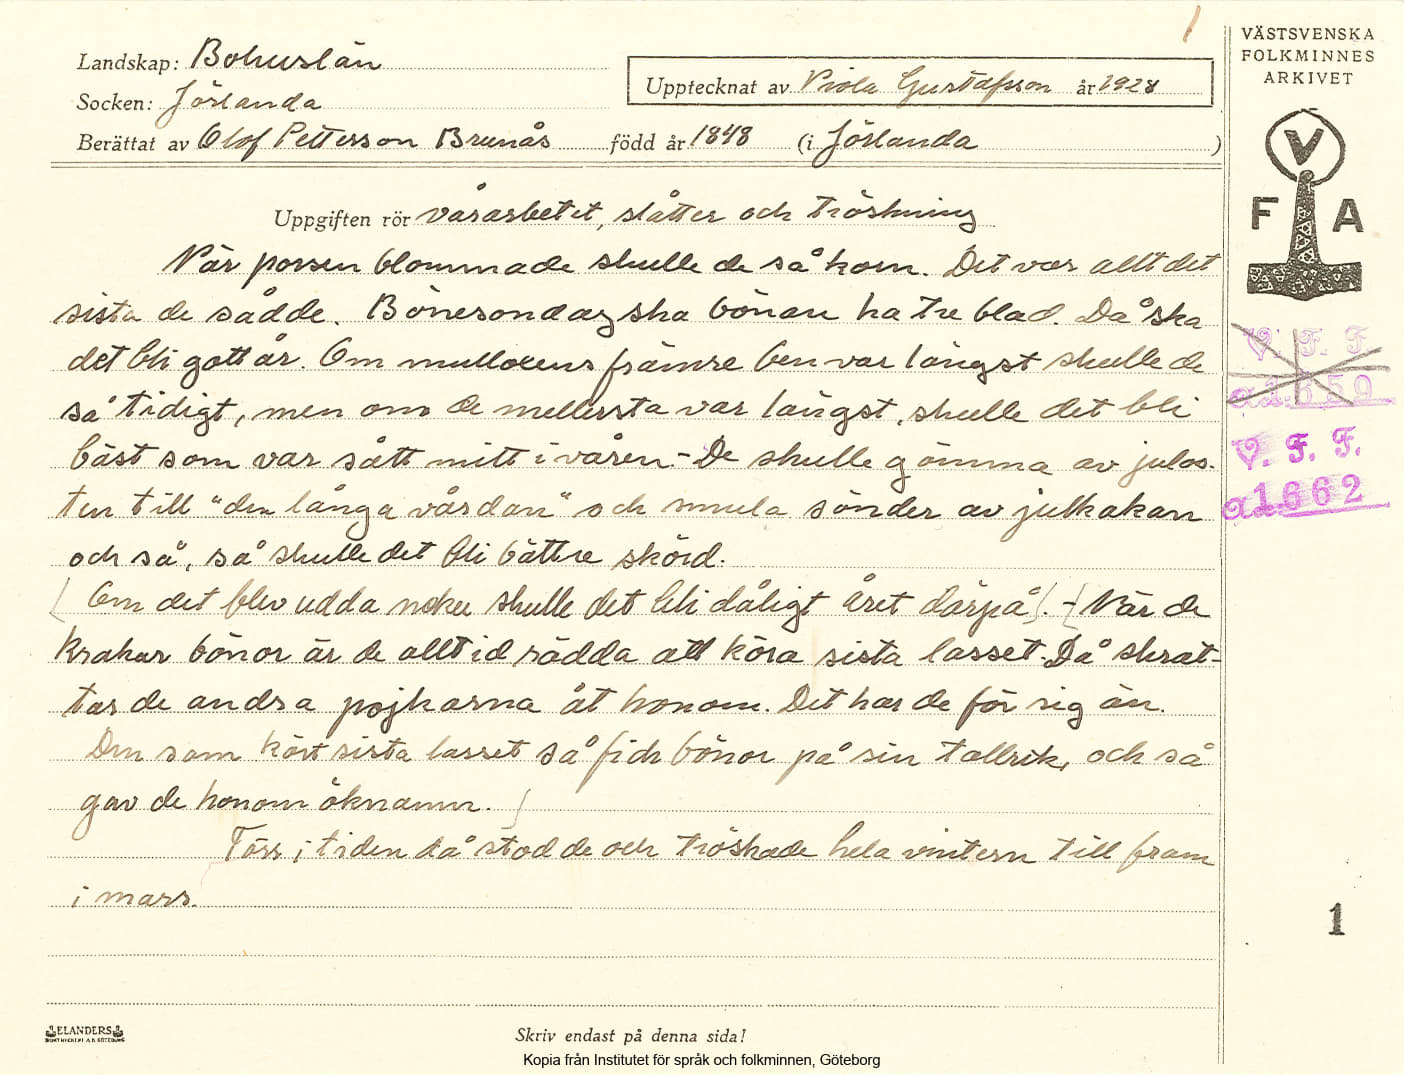 1
VÄSTSVENSKA
FOLKMINNES
ARKIVET
V
F A
Landskap: Bohuslän
Socken: Jörlanda
Upptecknat av Viola Gustafsson år 1928
Berättat av Olof Pettersson Brunås född år 1848 (i Jörlanda )
Uppgiften rör vårarbetet, slåtter och tröskning
När porsen blommade skulle de så korn. Det var allt det
sista de sådde. Bönesondag ska bönan ha tre blad. Då ska
det bli gott år. Om mulloxens främre ben var längst skulle de
så tidigt, men om de mellersta var längst, skulle det bli
bäst som var sått mitt i våren.- De skulle gömma av julos-
ten till "den långa vårdan" och smula sönder av julkakan
och så, så skulle det bli bättre skörd.
(Om det blev udda neker skulle det bli dåligt året därpå). - (När de
krakar bönor är de alltid rädda att köra sista lasset. Då skrat-
tar de andra pojkarna åt honom. Det har de för sig än.
Den som kört sista lasset så fick bönor på sin tallrik, och så
gav de honom öknamn. )
Förr i tiden då stod de och tröskade hela vintern till fram
i mars.
V. F. F.
V. F. F.
a1662
1
ELANDERS
BOKTRYCKERI A.B. GÖTEBORG
Skriv endast på denna sida!
Kopia från Institutet för språk och folkminnen, Göteborg